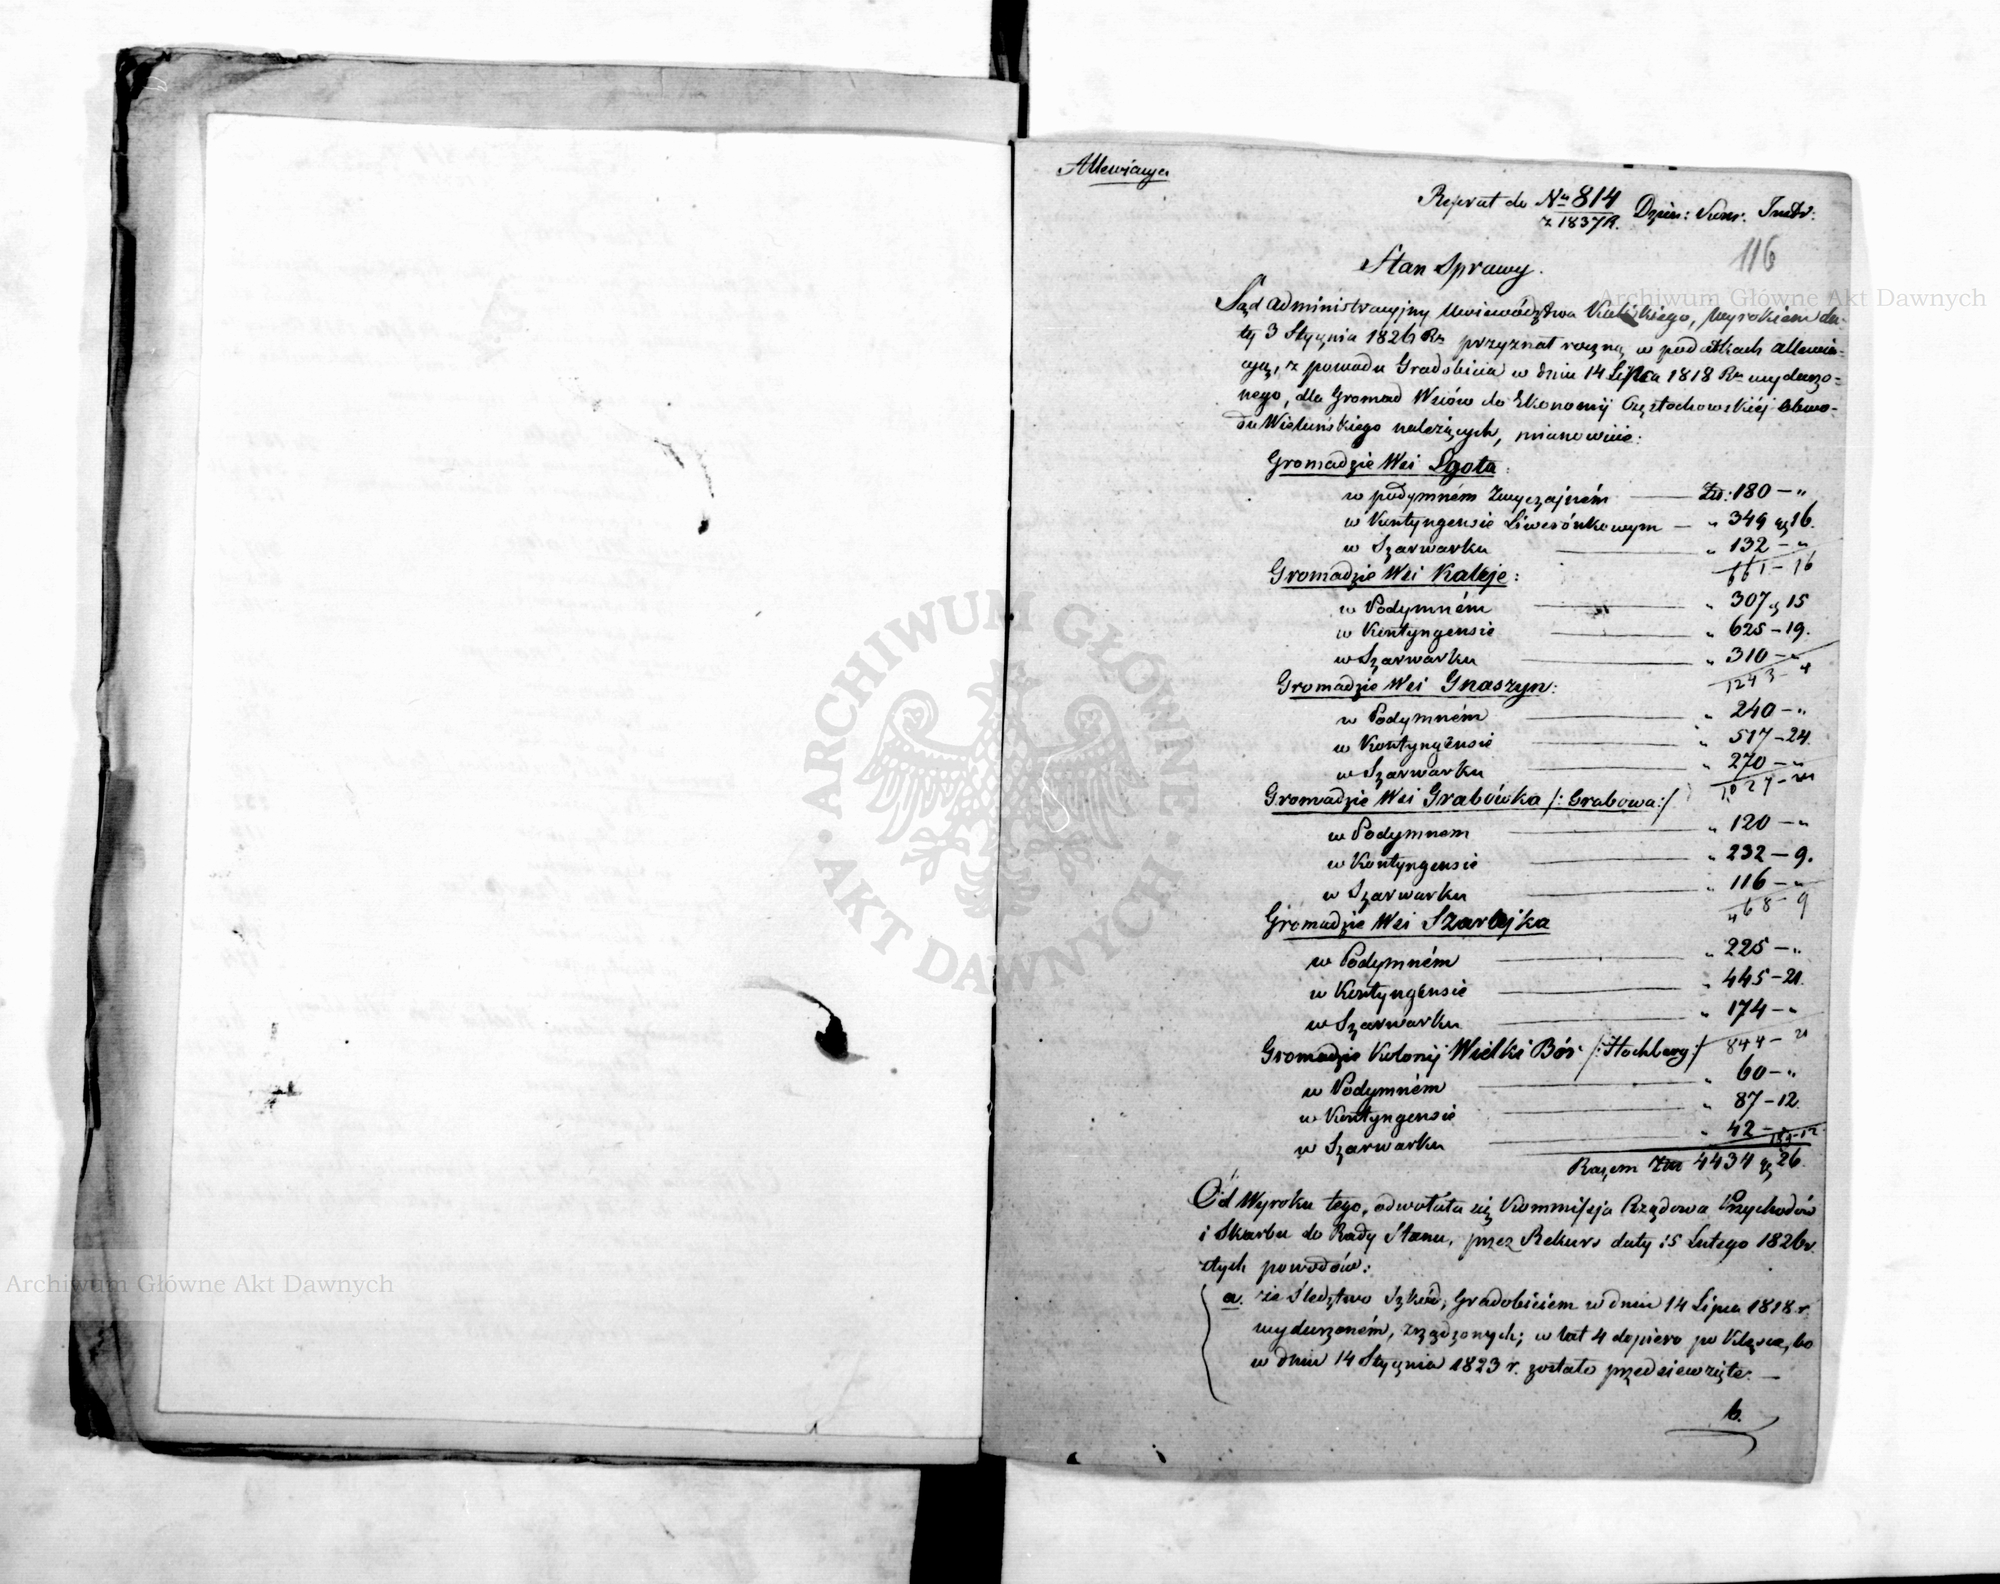 Allewiacya
Referat do Nru 814 Dzien: Kom. Instr:
z 1837 R.
116
Stan Sprawy.
Sąd administracyjny Województwa Kaliskiego, wyrokiem da-
ty 3 Stycznia 1826 Rn przyznał roczną w podatkach allewia-
cyą, z powodu Gradobicia w dniu 14 Lipca 1818 Rn wydarzo-
nego, dla Gromad Wsiów do Ekonomij Częstochowskiéj Obwo-
du Wieluńskiego należących, mianowicie:
Gromadzie Wsi Lgota:
w podymném Zwyczajném — Zł: 180 — "
w Kontyngensie Liwerónkowym — " 349 gr 16.
w Szarwarku — " 132 — "
661 — 16
Gromadzie Wsi Kaleje:
w Podymném — " 307 g 15
w Kontyngensie — " 625 — 19.
w Szarwarku — " 310 — "
1243 — 4
Gromadzie Wsi Gnaszyn:
w Podymném — " 240 — "
w Kontyngensie — " 517 — 24.
w Szarwarku — " 270 — "
1027 — 24
Gromadzie Wsi Grabówka /: Grabowa :/
w Podymnem — " 120 — "
w Kontyngensie — " 232 — 9.
w Szarwarku — " 116 — "
468 — 9
Gromadzie Wsi Szarlejka
w Podymném — " 225 — "
w Kontyngensie — " 445 — 21.
w Szarwarku — " 174 — "
844 — 21
Gromadzie Kolonij Wielki Bór /: Hochberg :/
w Podymném — " 60 — "
w Kontyngensie — " 87 — 12.
w Szarwarku — " 42 — "
189 — 12
Razem Złł 4434 gr 26.
Od Wyroku tego, odwołała się Kommissja Rządowa Przychodów
i Skarbu do Rady Stanu, przez Rekurs daty 15 Lutego 1826 r.
z tych powodów:
a. że śledztwo szkód, Gradobiciem w dniu 14 Lipca 1818 r.
wydarzoném, zrządzonych; w lat 4 dopiero po Klęsce, bo
w dniu 14 Stycznia 1823 r. zostało przedsiewzięte. —
b.
ARCHIWUM GŁÓWNE · AKT DAWNYCH ·
Archiwum Główne Akt Dawnych
Archiwum Główne Akt Dawnych